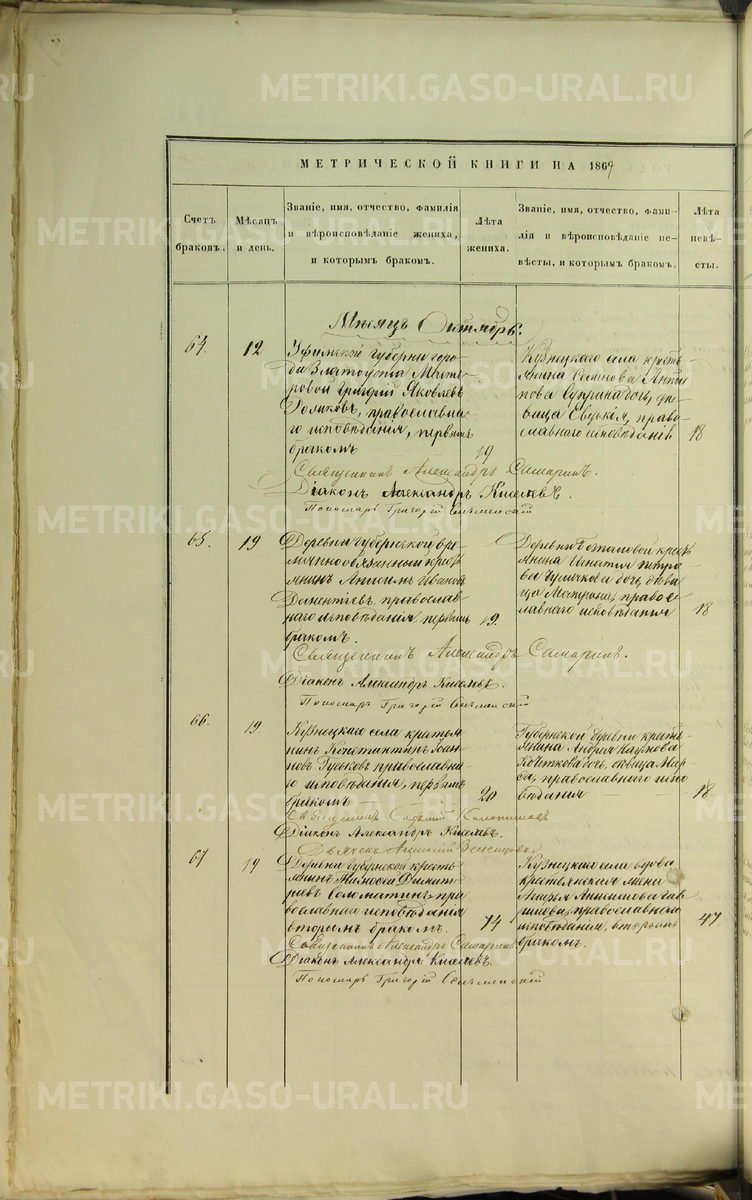 МЕТРИЧЕСКОЙ КНИГИ НА 1869
Счетъ браковъ.
Мѣсяцъ и день.
Званіе, имя, отчество, фамилія
и вѣроисповѣданіе жениха,
и которымъ бракомъ.
Лѣта жениха.
Званіе, имя, отчество, фами-
лія и вѣроисповѣданіе не-
вѣсты, и которымъ бракомъ.
Лѣта невѣ-
сты.
Мѣсяцъ Октябрь.
64.
12
Уфимской губерніи горо-
да Златоуста Масте-
ровой Григорій Яковлевъ
православна-
го исповѣданія, первымъ
бракомъ
19
Кузнецкаго села кресть-
янина Антипова дочь, дѣ-
вица право-
славнаго исповѣданія
18
Священникъ Александръ Самаринъ.
Діаконъ Александръ Киселевъ.
Пономарь Григорій
65.
19
Деревни Губернской вре-
менно обязанный кресть-
янинъ Анисимъ Ивановъ
православ-
наго исповѣданія, первымъ
бракомъ.
19.
Деревни кресть-
янина Игнатія Петро-
ва дочь, дѣви-
ца Матрона, правос-
лавнаго исповѣданія
18
Священникъ Александръ Самаринъ.
Діаконъ Александръ Киселевъ.
Пономарь Григорій
66.
19.
Кузнецкаго села крестья-
нинъ Константинъ Іоан-
новъ Гуськовъ православна-
го исповѣданія, первымъ
бракомъ
20
Губернской деревни кресть-
янина Андрея Наумова
дочь, дѣвица
православнаго испо-
вѣданія
18
Священникъ
Діаконъ Александръ Киселевъ.
Дьячекъ
67
19
Деревни Губернской кресть-
янинъ Димит-
ріевъ пра-
вославнаго исповѣданія
вторымъ бракомъ.
74
Кузнецкаго села вдова
крестьянская жена
Анисимова Гав-
рилова, православнаго
исповѣданія, вторымъ
бракомъ.
47
Священникъ Александръ Самаринъ
Діаконъ Александръ Киселевъ.
Пономарь Григорій
METRIKI.GASO-URAL.RU